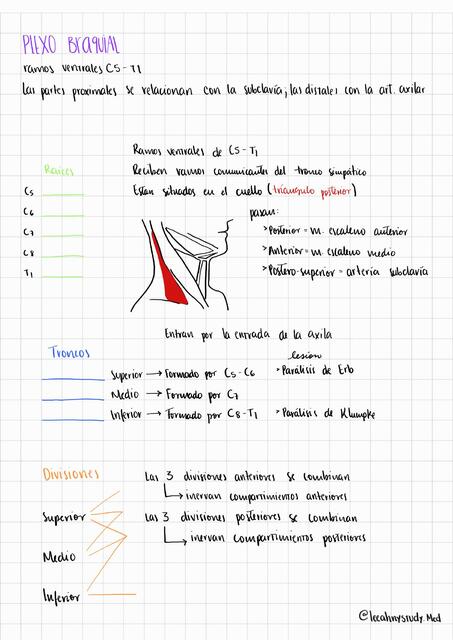 PLEXO BRAQUIAL
ramos ventrales C5-T1
Las partes proximales se relacionan con la subclavia, las distales con la art. axilar
Ramos ventrales de C5-T1
Raíces
Reciben ramos comunicantes del tronco simpático
C5
Estan situados en el cuello (triángulo posterior)
C6
pasan:
C7
>Posterior = m. escaleno anterior
C8
>Anterior = m. escaleno medio
T1
>Postero-superior = arteria subclavia
Entran por la entrada de la axila
Troncos
lesion
Superior → Formado por C5-C6 >Parálisis de Erb
Medio → Formado por C7
Inferior → Formado por C8-T1 >Parálisis de Klumpke
Divisiones
Las 3 divisiones anteriores se combinan
inervan compartimientos anteriores
Superior
Las 3 divisiones posteriores se combinan
inervan compartimientos posteriores
Medio
Inferior